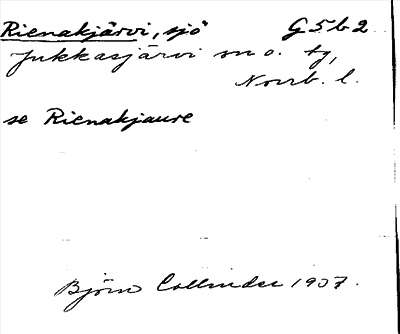 Rienakjärvi, sjö G 5 b 2
Jukkasjärvi sn o. tg,
Norrb. l.
se Rienakjaure
Björn Collinder 1937.